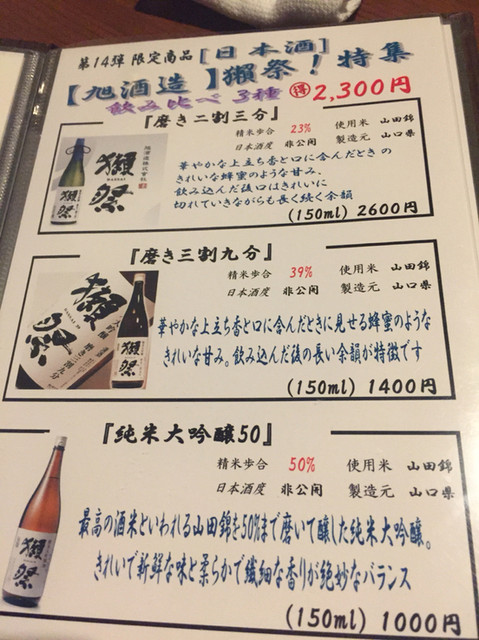 第14弾 限定商品 [日本酒]
【旭酒造】獺祭！特集
飲み比べ 3種 得 2,300円
『磨き二割三分』
精米歩合 23% 使用米 山田錦
日本酒度 非公開 製造元 山口県
華やかな上立ち香と口に含んだときの
きれいな蜂蜜のような甘み。
飲み込んだ後口はきれいに
切れていきながらも長く続く余韻
(150ml) 2600円
旭酒造株式会社
獺祭
DASSAI
獺祭
『磨き三割九分』
精米歩合 39% 使用米 山田錦
日本酒度 非公開 製造元 山口県
華やかな上立ち香と口に含んだときに見せる蜂蜜のような
きれいな甘み。飲み込んだ後の長い余韻が特徴です
(150ml) 1400円
獺祭
獺祭
『純米大吟醸50』
精米歩合 50% 使用米 山田錦
日本酒度 非公開 製造元 山口県
最高の酒米といわれる山田錦を50%まで磨いて醸した純米大吟醸。
きれいで新鮮な味と柔らかで繊細な香りが絶妙なバランス
(150ml) 1000円
獺祭